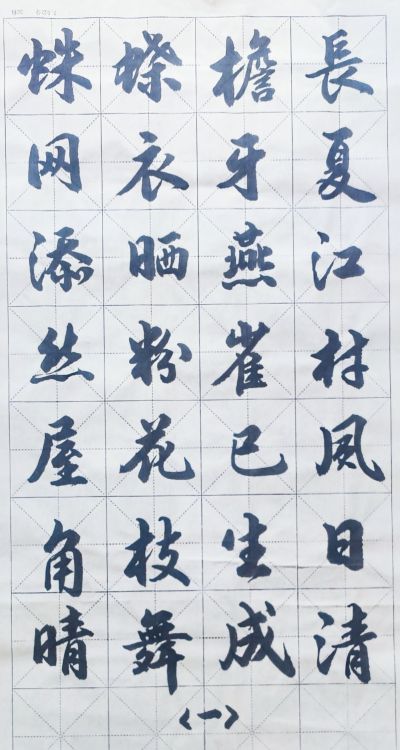 長夏江村风日清
檐牙燕雀已生成
蝶衣晒粉花枝舞
蛛网添然屋角晴
<一>